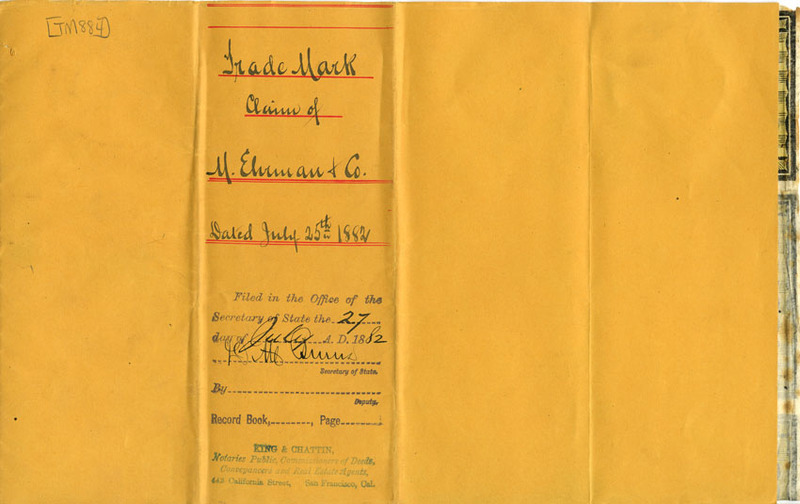 [TM884]
Trade Mark
Claim of
M. Ehrman & Co.
Dated July 25th 1882
Filed in the Office of the
Secretary of State the 27
day of July A. D. 1882
Secretary of State.
By
Deputy.
Record Book, , Page
KING & CHATTIN,
Notaries Public, Commissioners of Deeds,
Conveyancers and Real Estate Agents,
California Street, San Francisco, Cal.